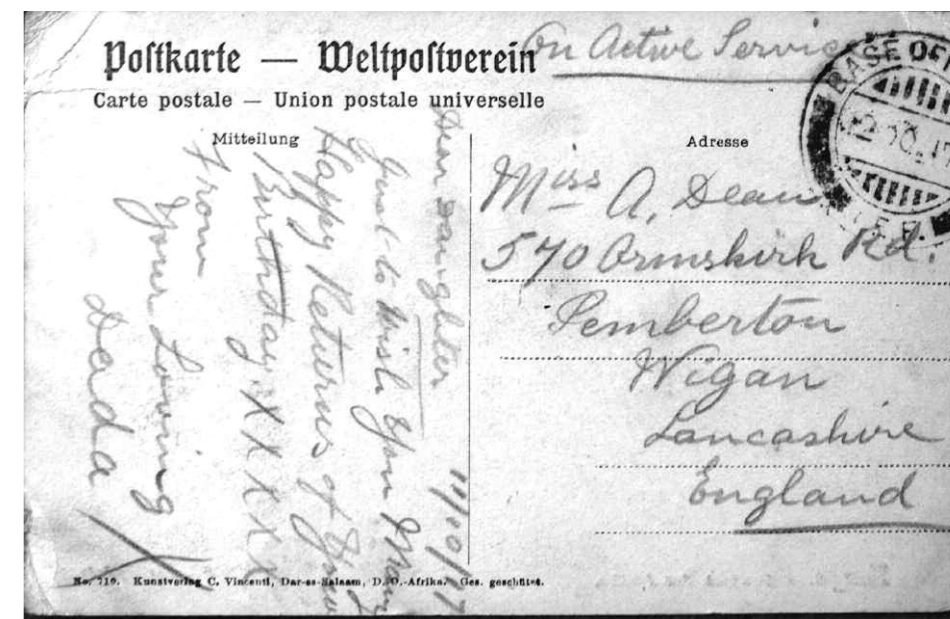 Postkarte — Weltpostverein
Carte postale — Union postale universelle
On Active Service
Mitteilung
Adresse
Dear Daughter
11/10/17
Just to Wish You Many
Happy Returns of Your
Birthday X X X X X
From
Your Loving
Dada
X
Miss A. Dean
570 Ormskirk Rd.
Pemberton
Wigan
Lancashire
England
BASE
No. 719. Kunstverlag C. Vincenti, Dar-es-Salaam, D.-O.-Afrika. Ges. geschützt.